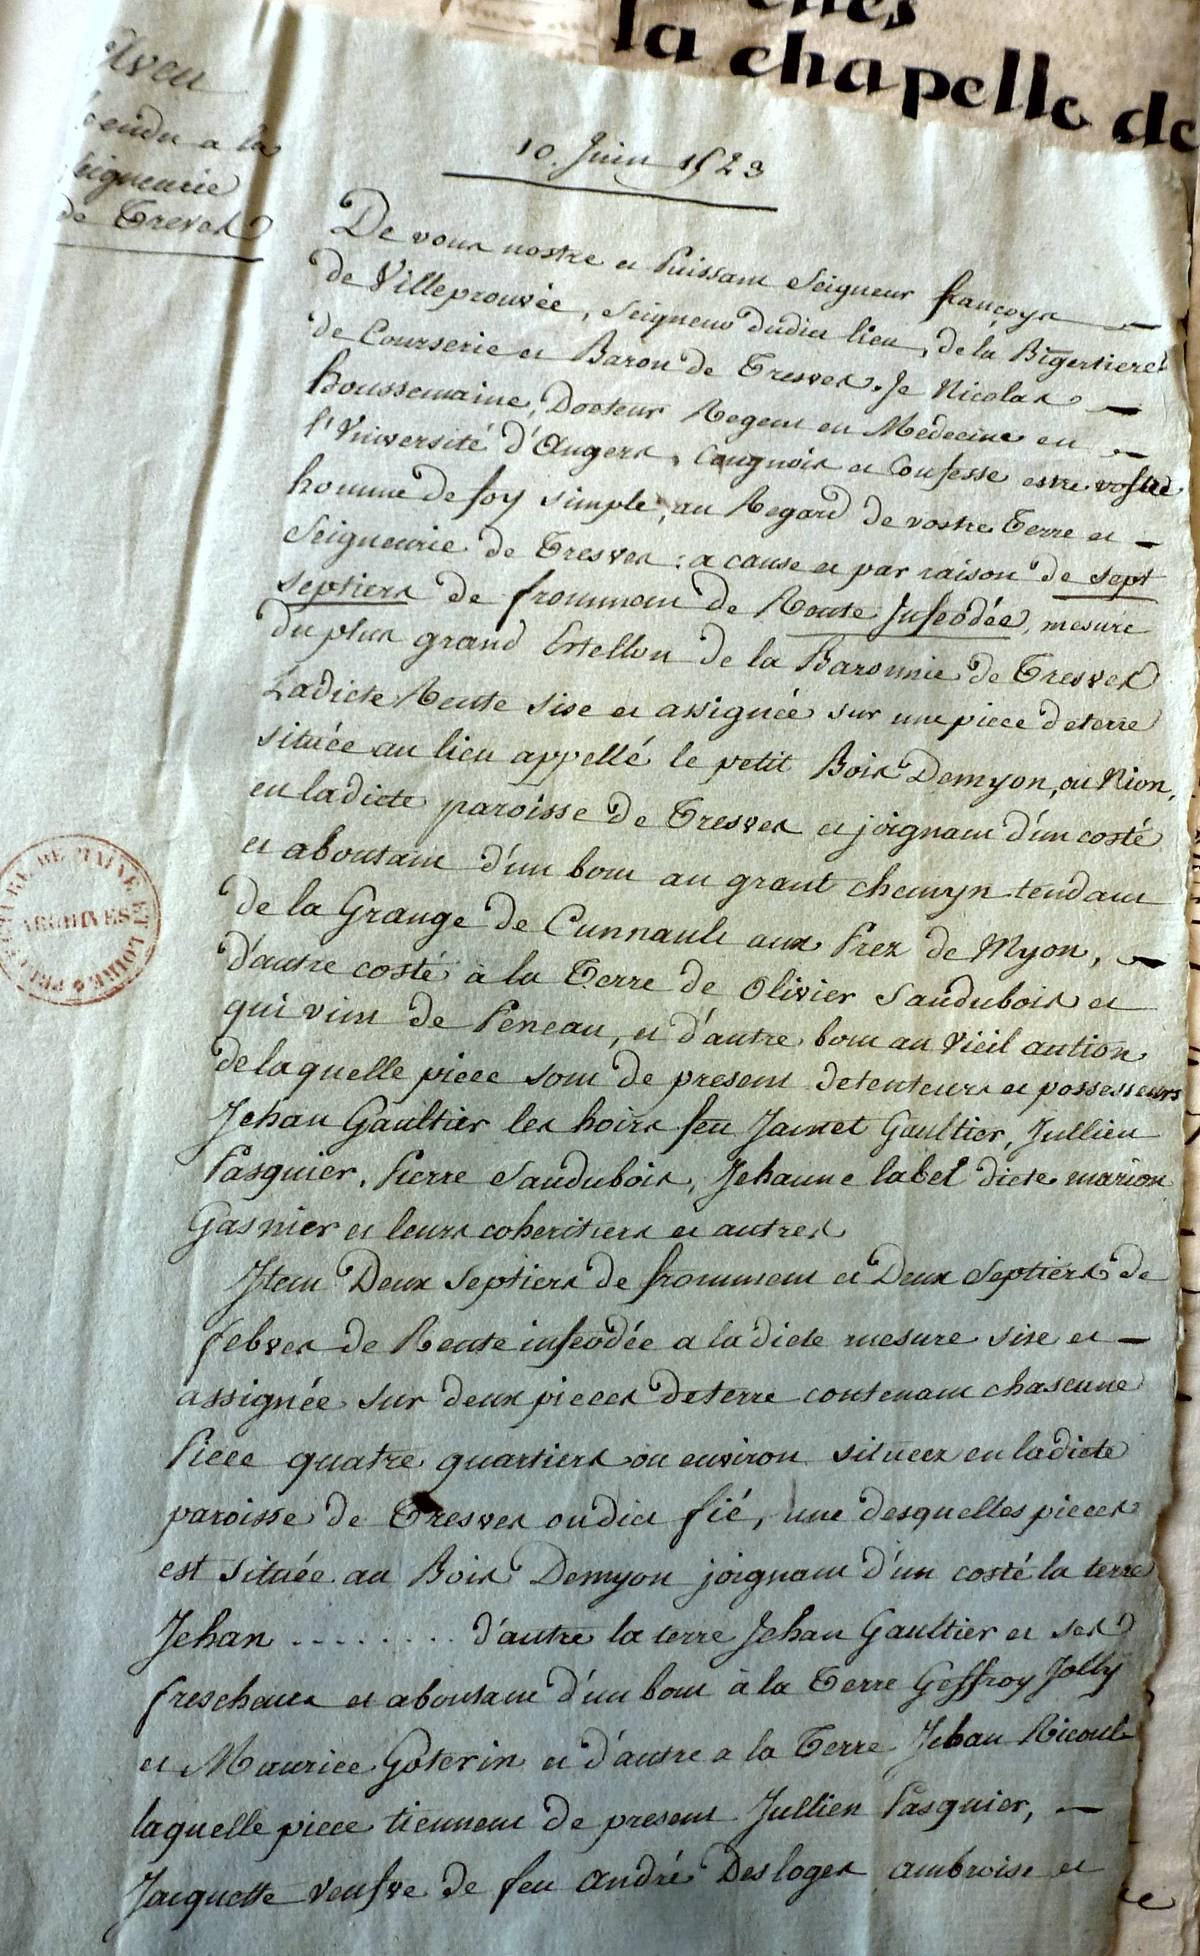 la chapelle de
Aveu
rendu a la
seigneurie
de Treves
10. Juin 1523
De vous nostre et Puissant Seigneur françoys
de Villeprouvée, Seigneur dudict lieu, de la Bigertiere
de Courserie et Baron de Tresves. Je Nicolas
houssemaine, Docteur Regent en Medecine en
l'Université d'Angers, Congnois et Confesse estre vostre
homme de foy simple, au Regard de vostre Terre et
Seigneurie de Tresves : a cause et par raison de sept
septiers de fromment de Rente Infeodée, mesure
du plus grand Estellon de la Baronnie de Tresves
Ladicte Rente sise et assignée sur une piece de terre
située au lieu appellé le petit Bois Demyon, ou Nion,
en ladicte paroisse de Tresves et joignant d'un costé
et aboutant d'un bout au grant chemyn tendant
de la Grange de Cunnault aux Prez de Myon,
d'autre costé à la Terre de Olivier Saudubois et
qui vint de Peneau, et d'autre bout au Vieil aution
de laquelle piece sont de present detenteurs et possesseurs
Jehan Gaultier les hoirs feu Jamet Gaultier, Jullien
Pasquier, Pierre Saudubois, Jehanne label dicte marion
Gasnier et leurs coheritiers et autres
Item Deux Septiers de fromment et Deux Septiers de
febves de Rente infeodée a ladicte mesure sise et
assignée sur deux pieces de terre contenant chascune
Piece quatre quartiers ou environ situees en ladicte
paroisse de Tresves oudict fié, une desquelles pieces
est située au Bois Demyon joignant d'un costé la terre
Jehan ........ d'autre la terre Jehan Gaultier et ses
frescheurs et aboutant d'un bout à la Terre Geffroy Jolly
et Maurice Goterin et d'autre a la Terre Jehan Ricoul
laquelle piece tiennent de present Jullien Pasquier,
Jacquette veufve de feu André Desloges ambroise et
ARCHIVES